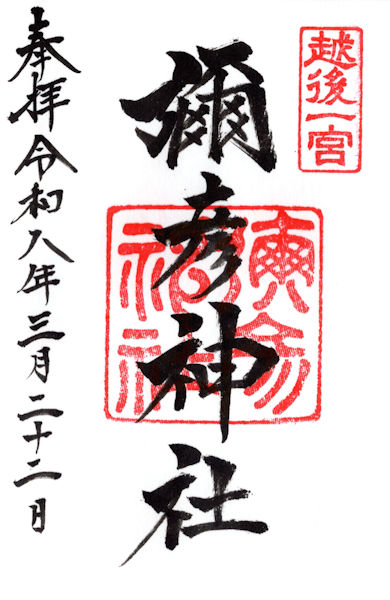 越後一宮
彌彦神社
奉拝令和八年三月二十二日